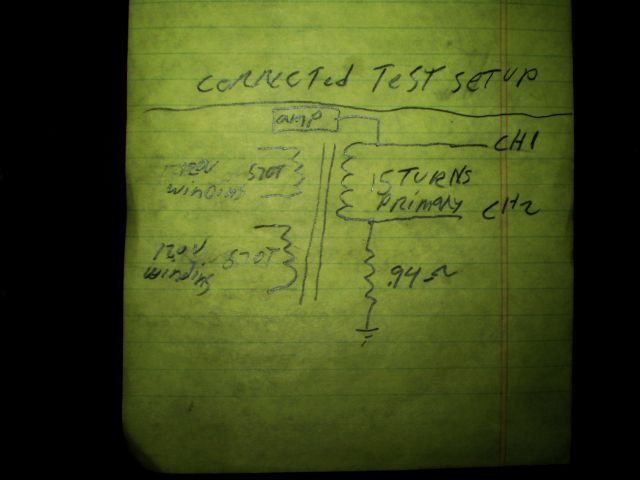 CORRECTed TeST SeTUP
amp
CH1
120V
winding
570T
15 TURNS
PRIMARY
CH2
120V
winding
570T
.94 Ω